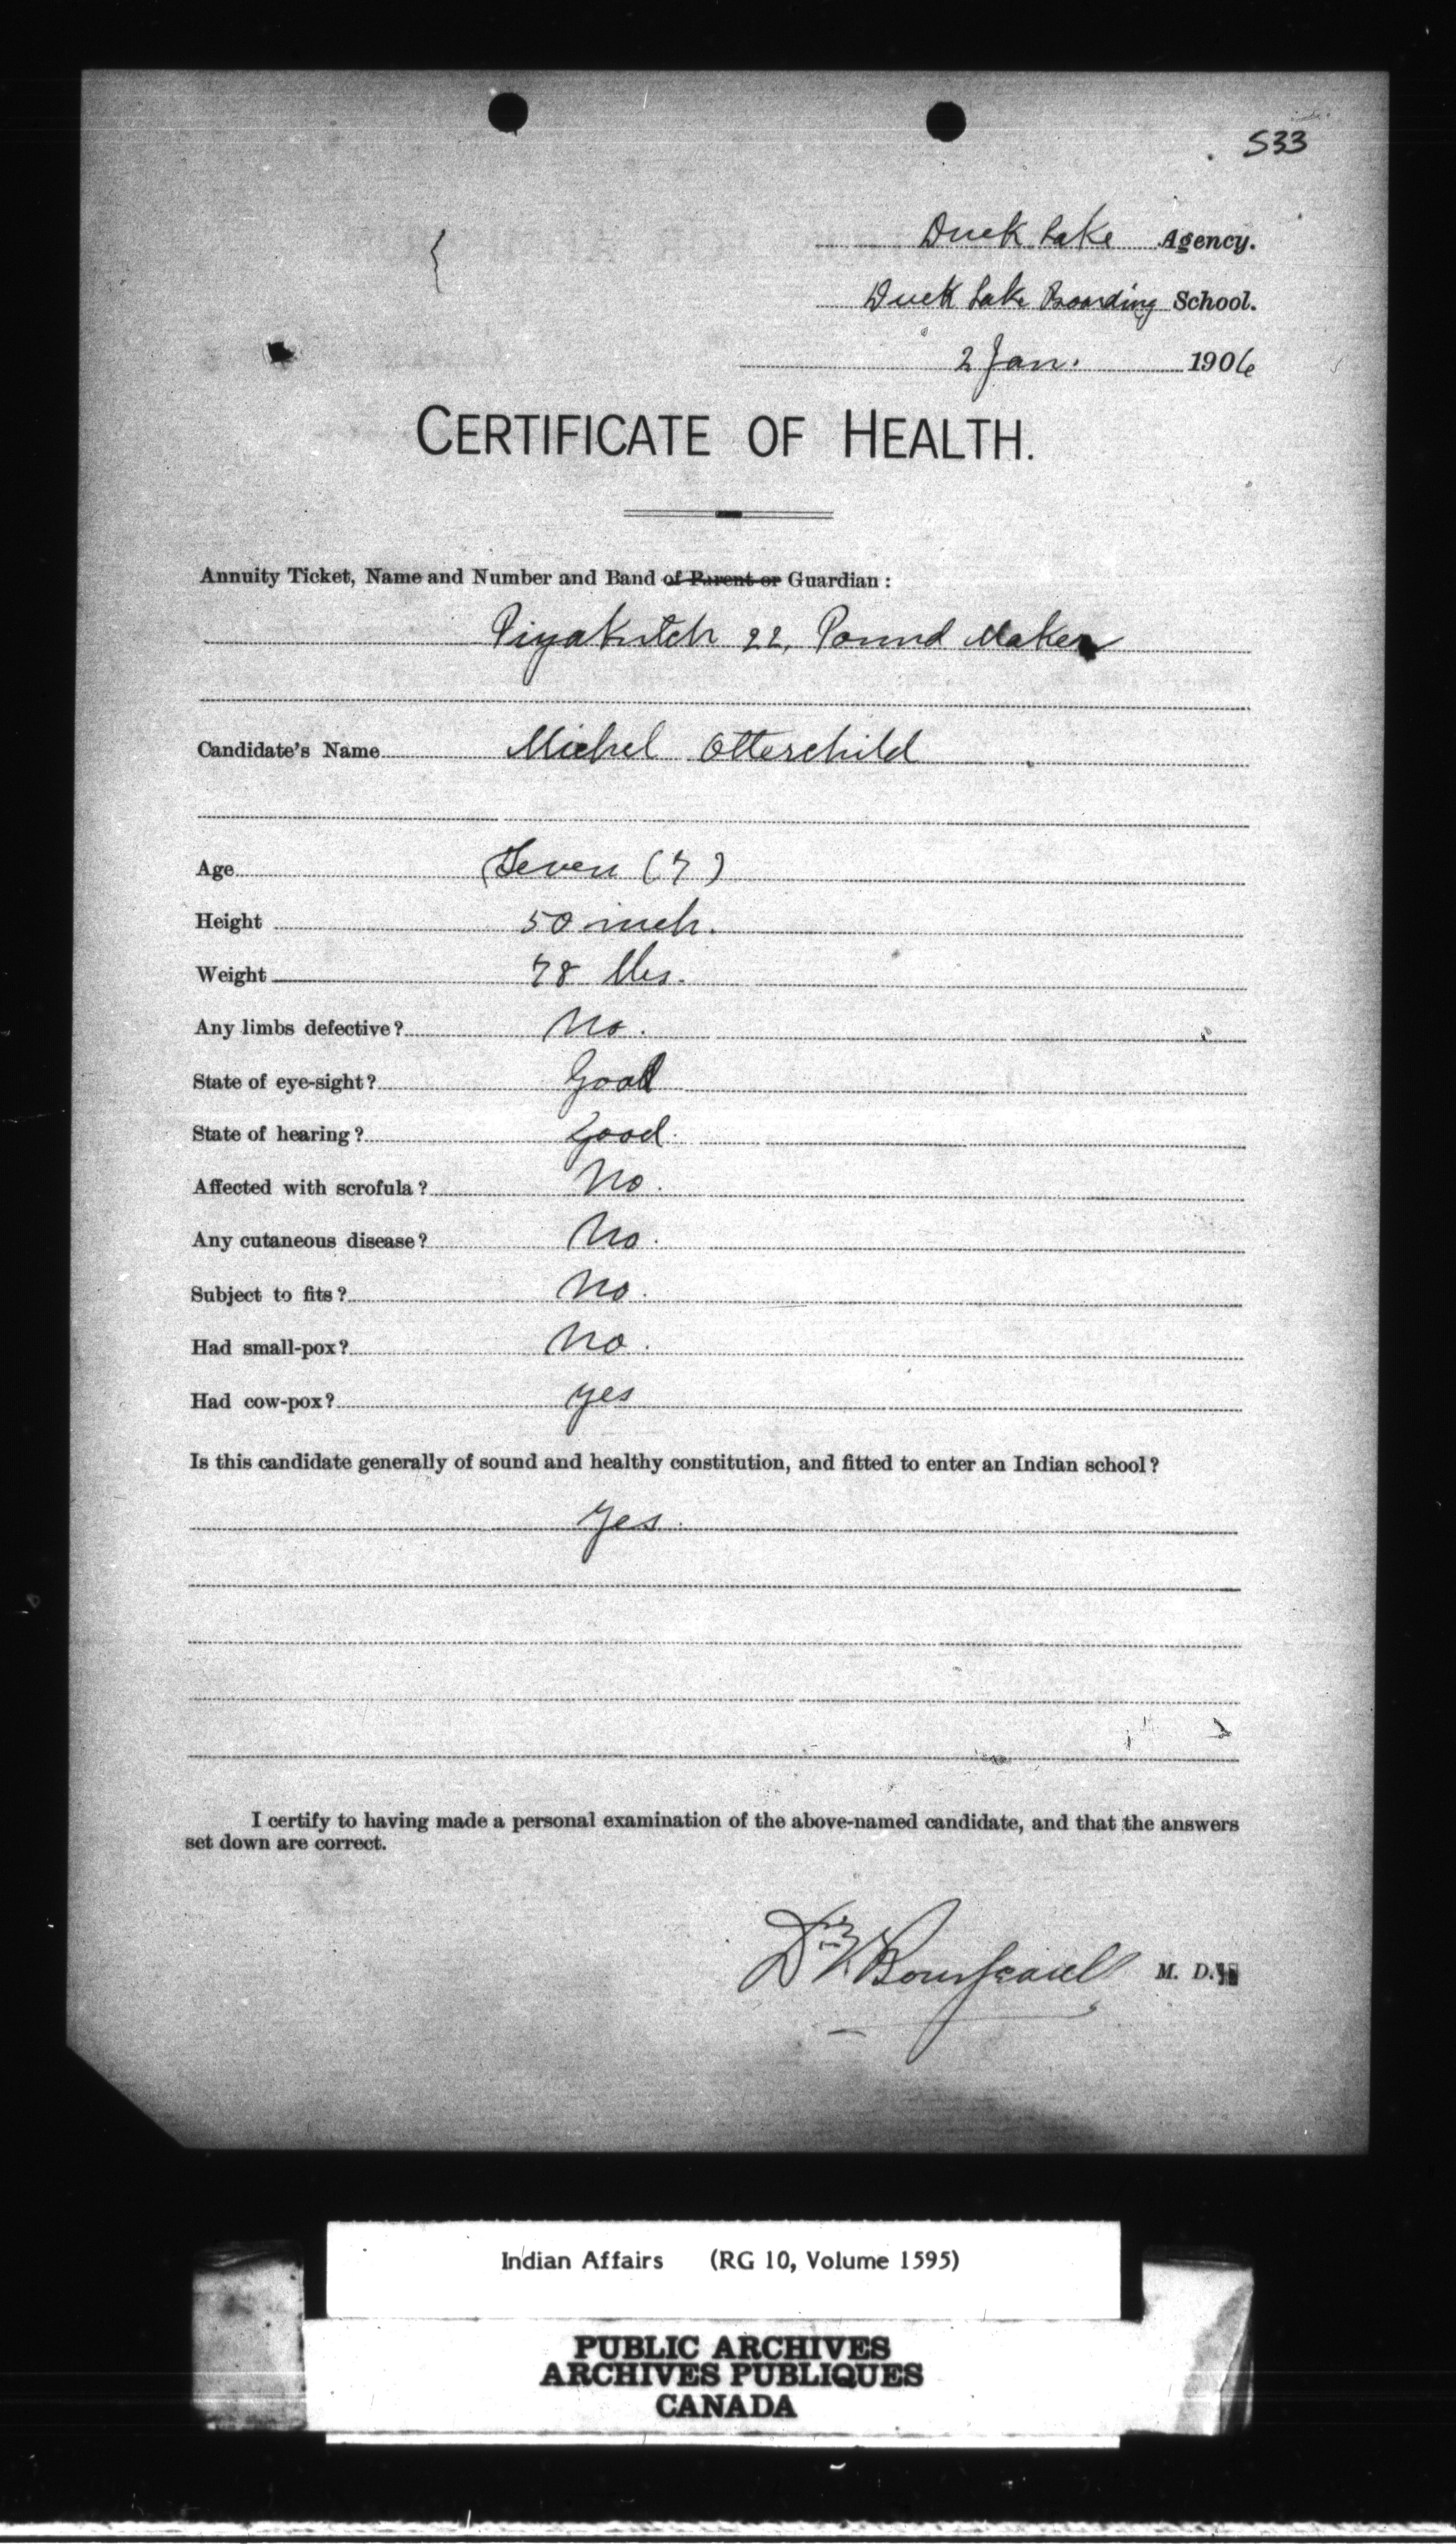 533
Duck Lake Agency.
Duck Lake Boarding School.
2 Jan. 1906
CERTIFICATE OF HEALTH.
Annuity Ticket, Name and Number and Band of Parent or Guardian :
22, Pound Maker
Candidate's Name Michel Otterchild
Age Seven (7)
Height 50 inch.
Weight 78 lbs.
Any limbs defective? No.
State of eye-sight? Good
State of hearing? Good.
Affected with scrofula? No.
Any cutaneous disease? No.
Subject to fits? No.
Had small-pox? No.
Had cow-pox? yes
Is this candidate generally of sound and healthy constitution, and fitted to enter an Indian school?
Yes.
I certify to having made a personal examination of the above-named candidate, and that the answers
set down are correct.
M. D.
Indian Affairs (RG 10, Volume 1595)
PUBLIC ARCHIVES
ARCHIVES PUBLIQUES
CANADA